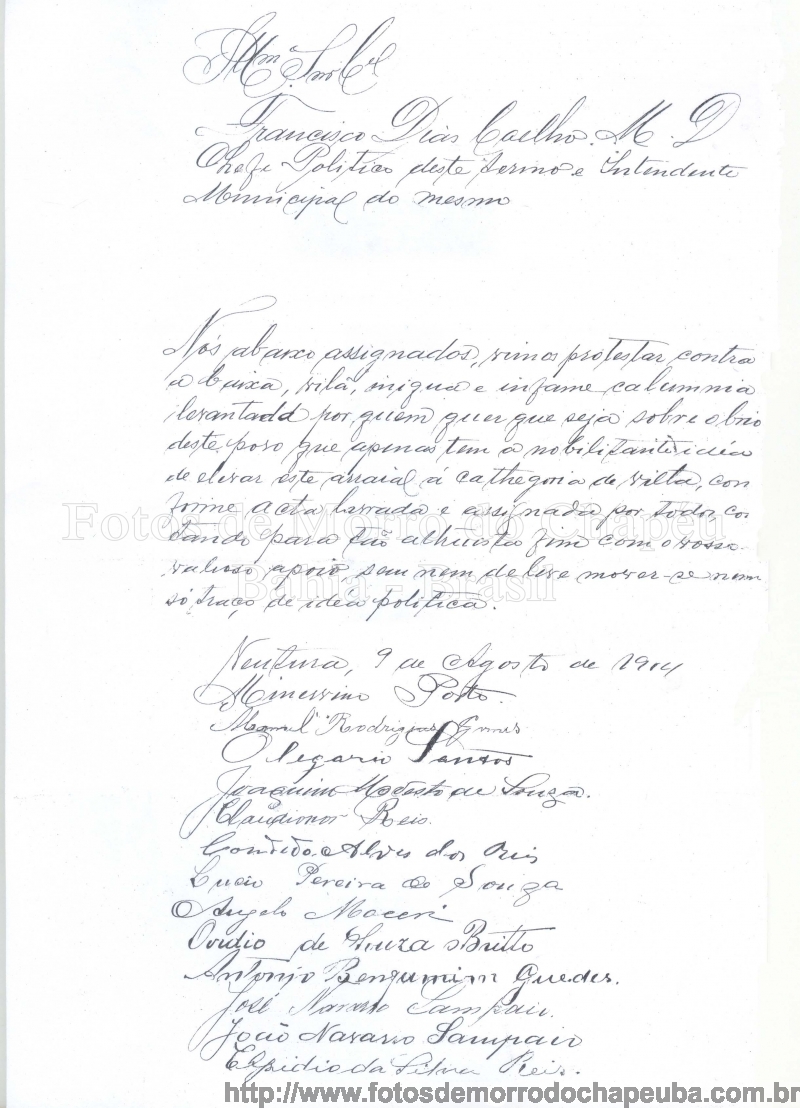 Illmº. Snr. Cel
Francisco Dias Coelho. M. D
Chefe Politico deste termo e Intendente
Municipal do mesmo
Nós abaixo assignados, vimos protestar contra
a baixa, vilã, iniqua e infame calumnia
levantada por quem quer que seja sobre o brio
deste povo que apenas tem a nobilitante idéa
de elevar este arraial á cathegoria de villa, con
forme acta lavrada e assignada por todos, con
tando para tão altruista fim com o vosso
valioso apoio, sem nem de leve mover-se num
só traço de idea politica.
Ventura, 9 de Agosto de 1914
Minervino Porto.
Manuel Rodrigues Gomes
Olegario Santos
Joaquim Modesto de Souza.
Claudionor Reis.
Candido Alves dos Reis
Lucio Pereira de Souza
Angelo Maceri
Ovidio de Souza Britto
Antonio Benjumim Guedes.
José Navarro Sampaio.
João Navarro Sampaio
Elpidio da Silva Reis.
Fotos de Morro do Chapéu
Bahia - Brasil
http://www.fotosdemorrodochapeuba.com.br